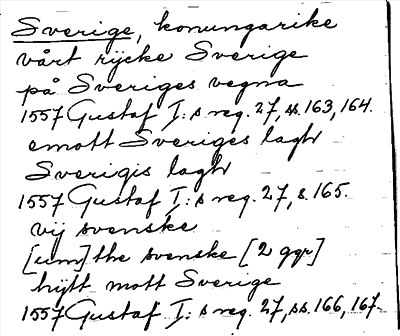 Sverige, konungarike
vårt rijcke Sverige
på Sveriges vegna
1557 Gustaf I:s reg. 27, ss. 163, 164.
emott Sveriges lagh
Sverigis lagh
1557 Gustaf I:s reg. 27, s. 165.
vij svenske
[um] the svenske [2 ggr]
hijtt mott Sverige
1557 Gustaf I:s reg. 27, ss. 166, 167.